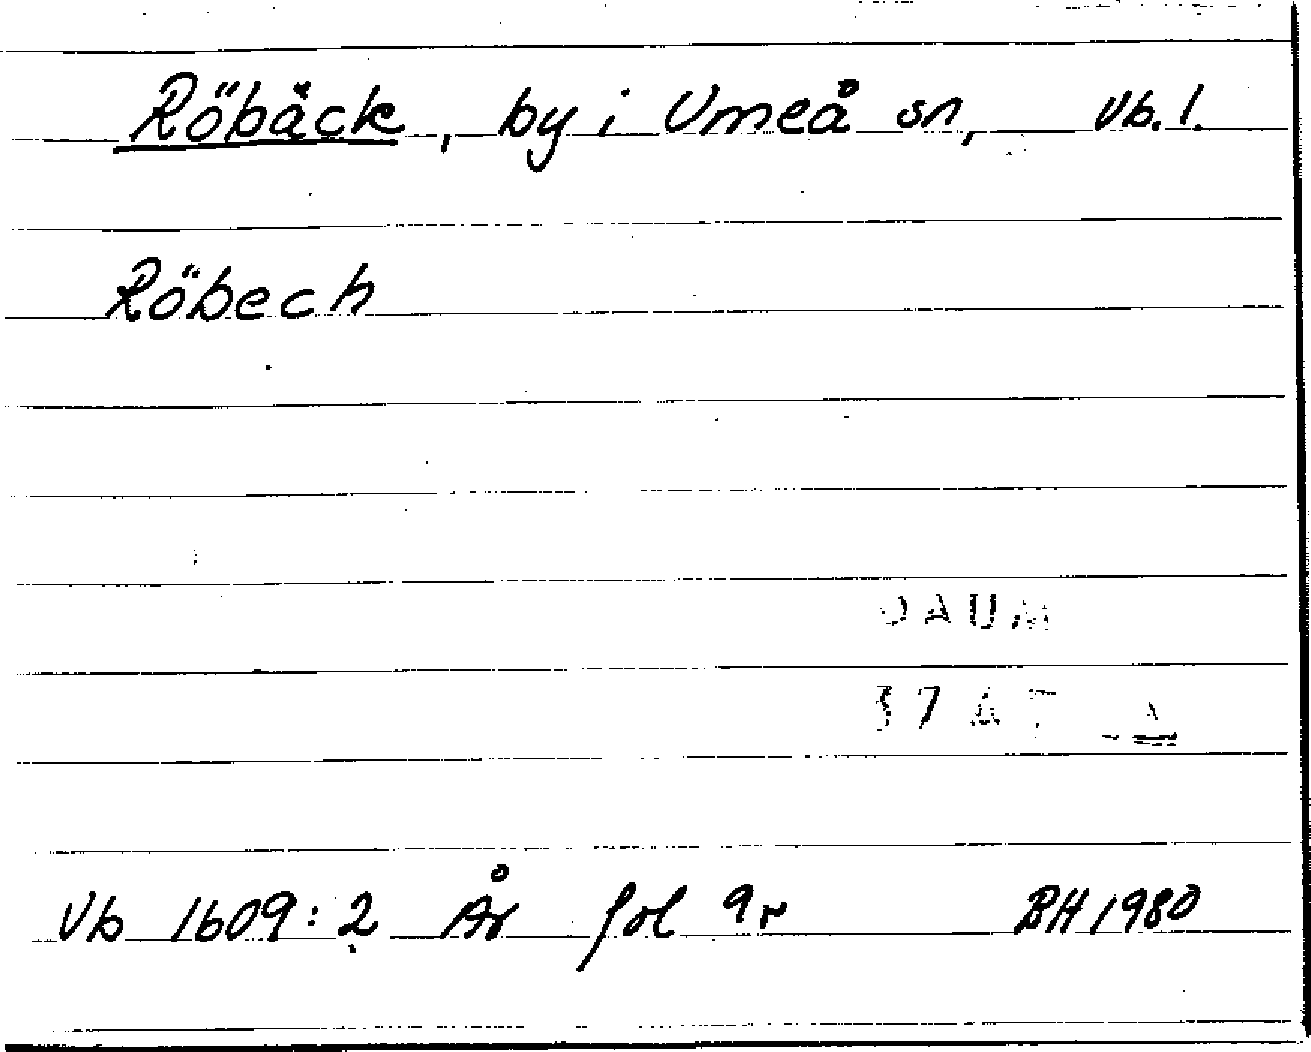 Röbäck, by i Umeå sn, Vb. l.
Röbech
DAUM
Vb 1609:2 År fol 9r BH 1980